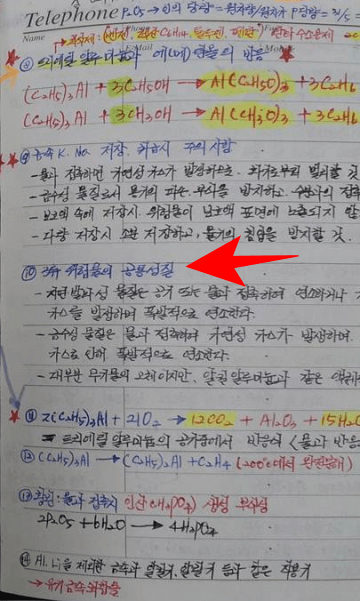 Telephone P₂O₅ → 인의 당량 =
Name
⑧ 트리에틸알루미늄과 에(메)탄올의 반응
(C₂H₅)₃Al + 3C₂H₅OH → Al(C₂H₅O)₃ + 3C₂H₆
(C₂H₅)₃Al + 3CH₃OH → Al(CH₃O)₃ + 3C₂H₆
⑨ 금속 K, Na 저장, 취급시 주의사항
- 물과 접촉하면 가연성 가스가 발생하므로 화기로부터 멀리할 것
- 금수성 물질로서 용기의 파손, 부식을 방지하고 수분과의 접촉
- 보호액 속에 저장시 위험물이 보호액 표면에 노출되지 않
- 다량 저장시 소분 저장하고, 물기의 침입을 방지할 것.
⑩ 3류 위험물의 공통성질
- 자연발화성 물질은 공기 또는 물과 접촉하여 연소하거나
가스를 발생하며 폭발적으로 연소한다.
- 금수성 물질은 물과 접촉하여 가연성 가스가 발생하며,
가스로 인해 폭발적으로 연소한다.
- 대부분 무기물의 고체이지만, 알킬알루미늄과 같은 액체
⑪ 2(C₂H₅)₃Al + 21O₂ → 12CO₂ + Al₂O₃ + 15H₂O
트리에틸알루미늄의 공기중에서 반응식 <물과 반응
⑫ (C₂H₅)₃Al → (C₂H₅)₂Al + C₂H₄ (200℃에서
⑬ 황린 : 물과 접촉시 인산(H₃PO₄) 생성 부식성
2P₂O₅ + 6H₂O → 4H₃PO₄
⑭ Al, Li을 제외한 금속과 알칼리, 알칼리 등과 같은 유기
→ 유기금속화합물